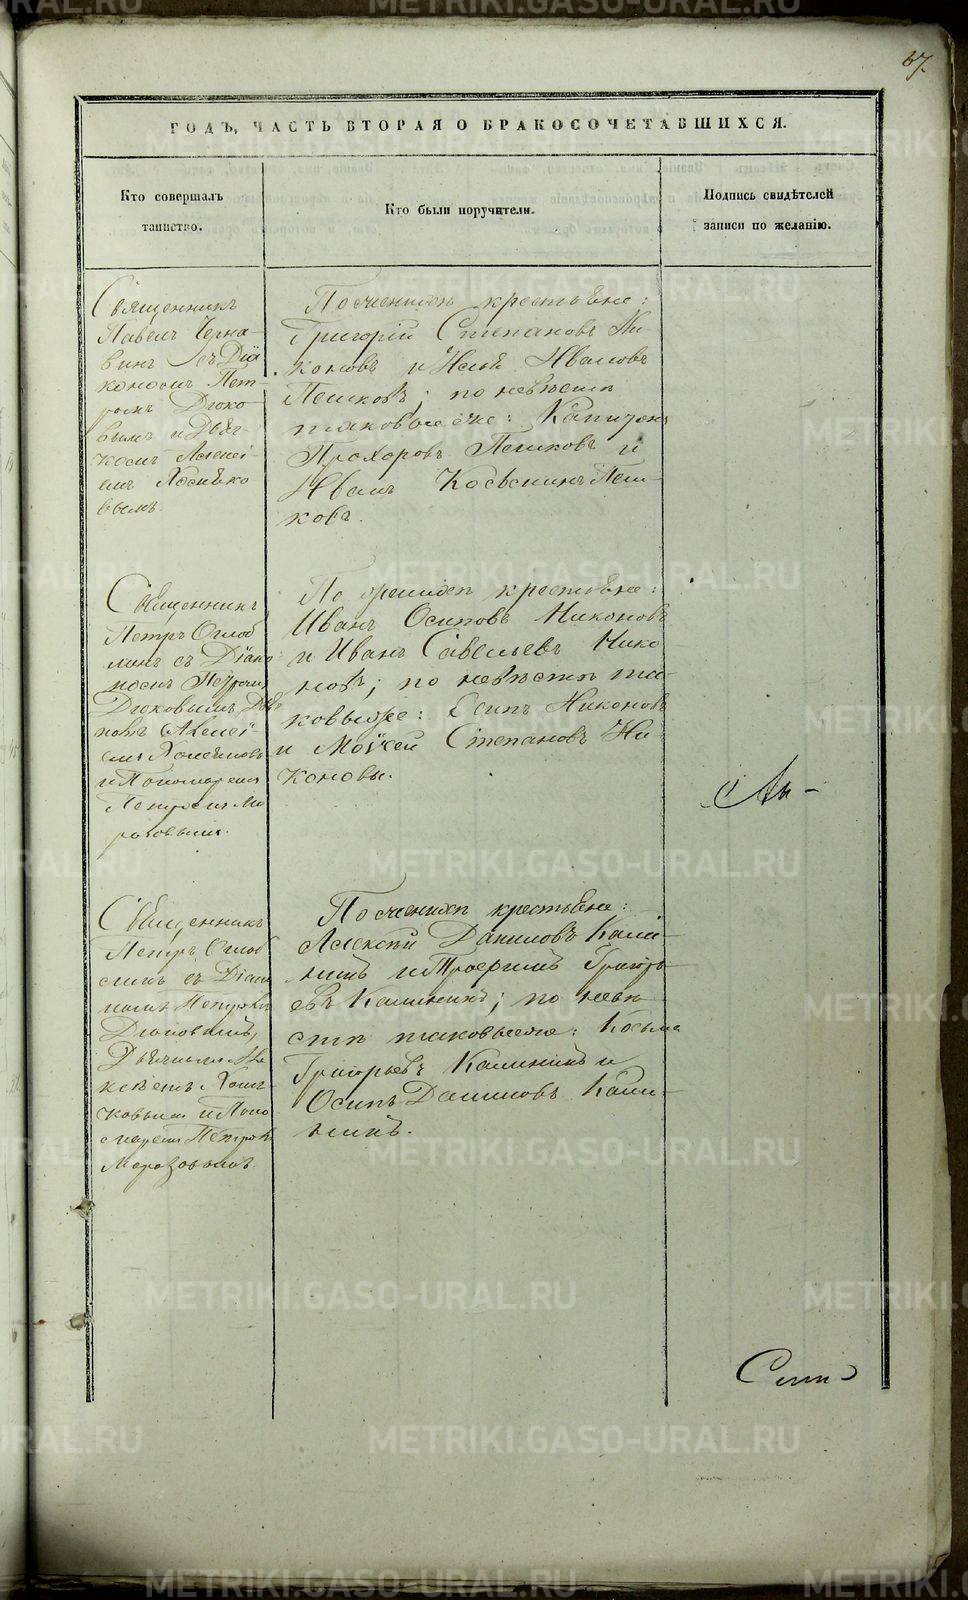 67.
ГОДЪ, ЧАСТЬ ВТОРАЯ О БРАКОСОЧЕТАВШИХСЯ.
Кто совершалъ
таинство.
Кто были поручители.
Подпись свидѣтелей
записи по желанію.
Священникъ
Павелъ Черна-
винъ съ Діа
кономъ Пет-
ромъ Дюко-
вымъ и Дьяч-
комъ Алексі-
емъ Хомѣко
вымъ.
По женихѣ крестьяне:
Григорій Степановъ Ни-
коновъ и Иванов
Пешковъ; по невѣстѣ
таковыеже: Капитонъ
Прохоровъ Пешковъ и
Иванъ Пеш-
ковъ.
Священникъ
Петръ Оглоб
линъ съ Діако
номъ Петромъ
Дюковымъ
Алексѣ
емъ
и Пономаремъ
Петромъ Мо
розовымъ.
По женихѣ крестьяне:
Иванъ Осиповъ Никоновъ
и Иванъ Савельевъ Нико
новъ; по невѣстѣ та-
ковыеже: Есипъ Никоновъ
и Моѵсей Степановъ Ни-
коновы.
Священникъ
Петръ Оглоб
линъ съ Діако
номъ Петромъ
Дюковымъ,
Дьячкомъ Але
ксѣемъ Хомѣ-
ковымъ и Поно
маремъ Петромъ
Морозовымъ.
По женихѣ крестьяне:
Алексѣй Даниловъ Кали-
нинъ и Трофимъ Григорь-
евъ Калининъ; по невѣ
стѣ таковыеже: Косьма
Григорьевъ Калининъ и
Осипъ Даниловъ Кали-
нинъ.
METRIKI.GASO-URAL.RU